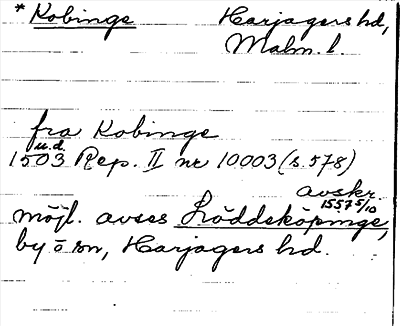 * Kobinge Harjagers hd,
Malm. l.
fra Kobinge
u.d.
1503 Rep. II nr 10003 (s. 578)
avskr.
1557 5/10
möjl. avses Löddeköpinge,
by o sn, Harjagers hd.